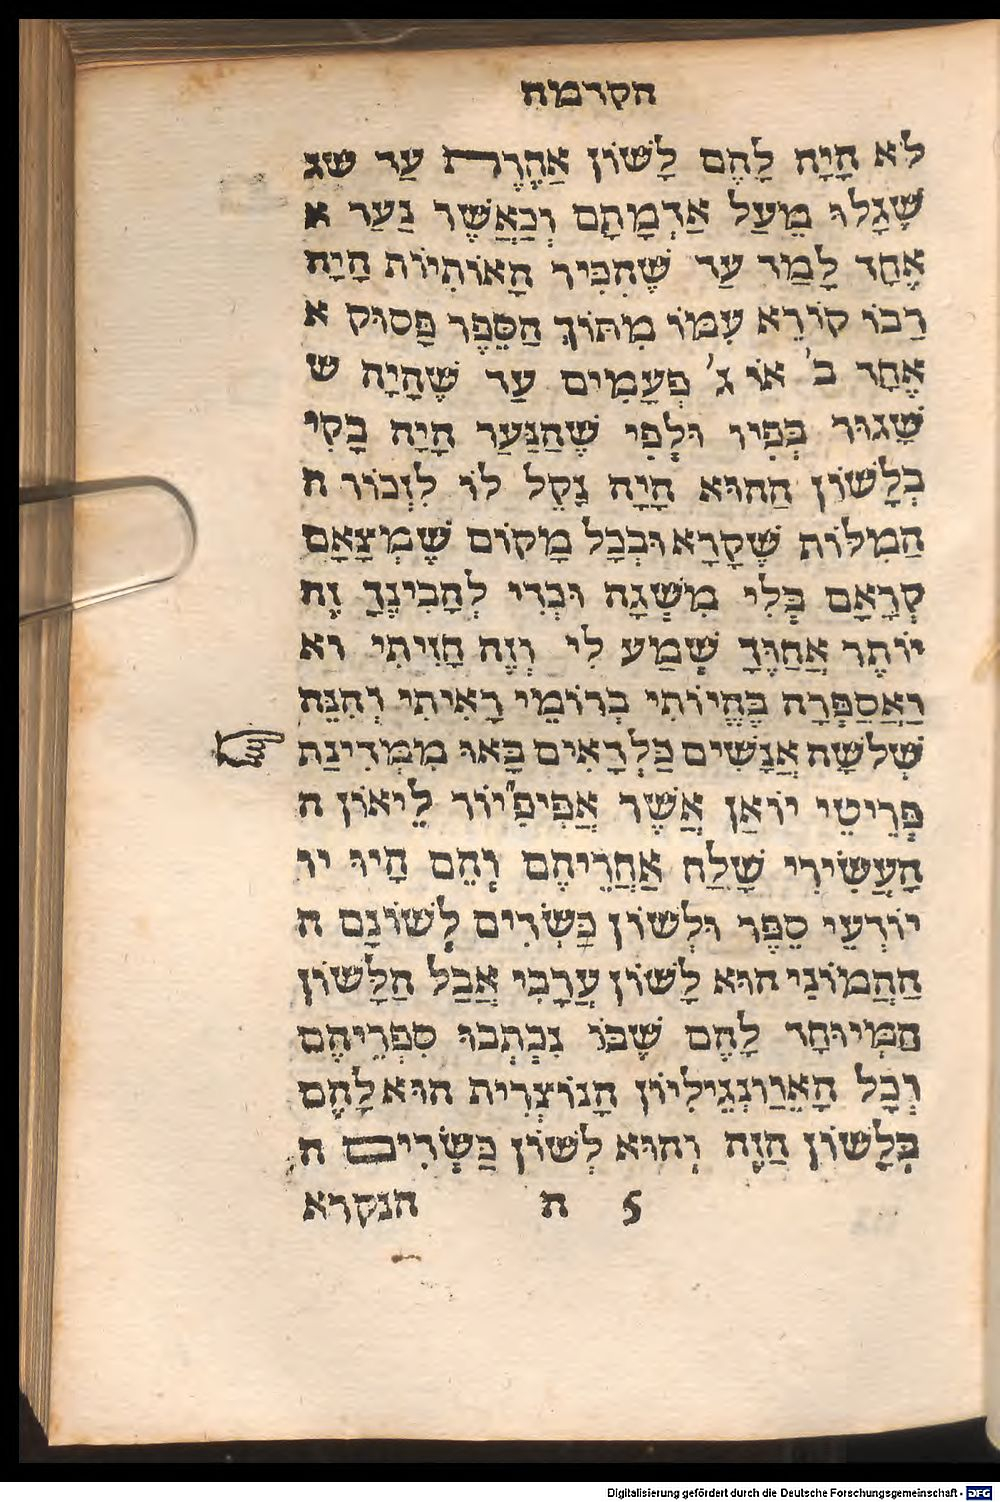 הקדמה
לֹא הָיָה לָהֶם לָשׁוֹן אַחֶרֶת עַד שג
שֶׁגָלוּ מֵעַל אַדְמָתָם וְכַאֲשֶׁר נַעַר א
אֶחָד לָמַד עַד שֶׁהִכִּיר הָאוֹתִיוֹת הָיָה
רַבּוֹ קוֹרֵא עִמּוֹ מִתּוֹךְ הַסֵּפֶר פָּסוּק א
אֶחָד ב' אוֹ ג' פְּעָמִים עַד שֶׁהָיָה ש
שָׁגוּר בְּפִיו וּלְפִי שֶׁהַנַּעַר הָיָה בָקִי
בְּלָשׁוֹן הַהוּא הָיָה נָקֵל לוֹ לִזְכוֹר ה
הַמִלּוֹת שֶׁקָרָא וּבְכָל מָקוֹם שֶׁמְצָאָם
קְרָאָם בְּלִי מִשְׁגֶה וּכְדִי לְהָבִינְךָ זֶה
יוֹתֵר אֲחַוְּךָ שְׁמַע לִי וְזֶה חָזִיתִי וא
וַאֲסַפְּרָה בֶּהֱיוֹתִי בְרוֹמֵי רָאִיתִי וְהִנֵּה
שְׁלֹשָׁה אֲנָשִׁים כַּלְדָאִים בָּאוּ מִמְּדִינַת
פְּרֵיטֵי יוֹאַן אֲשֶׁר אֲפִּיפִיּוֹר לֵיאוֹן ה
הָעֲשִׂירִי שָׁלַח אַחֲרֵיהֶם וְהֵם הָיוּ יו
יוֹדְעֵי סֵפֶר וּלְשׁוֹן כַּשְׂדִים לְשׁוֹנָם ה
הַהֲמוֹנִי הוּא לָשׁוֹן עֲרָבִי אֲבָל הַלָּשׁוֹן
הַמְּיוּחָד לָהֶם שֶׁבּוֹ נִכְתְּבוּ סִפְרֵיהֶם
וְכָל הָאֵוַונְגֵילִיוֹן הָנוֹצְרִית הוּא לָהֶם
בְּלָשׁוֹן הַזֶּה וְהוּא לְשׁוֹן כַּשְׂדִים ה
5 ה הנקרא
Digitalisierung gefördert durch die Deutsche Forschungsgemeinschaft - DFG